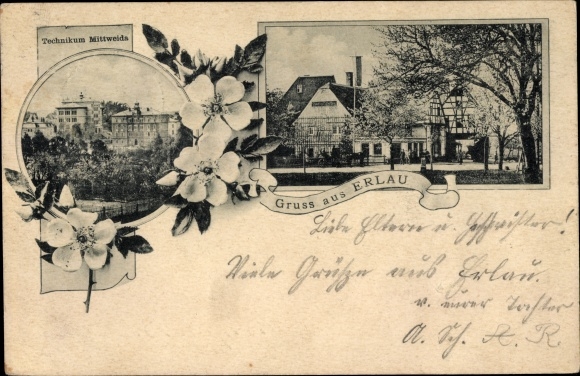 Technikum Mittweida
Gruss aus ERLAU
Liebe Eltern u. Geschwister!
Viele Grüße aus Erlau.
v. eurer Tochter
A. Sch. A. R.